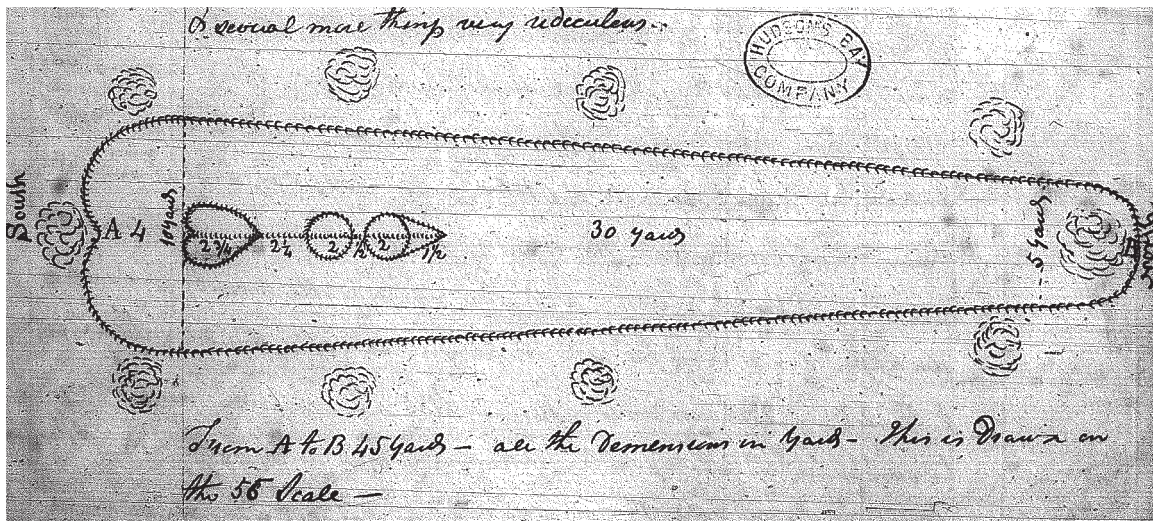 & several more things very redeculous.
HUDSON'S BAY
COMPANY
South
A 4
10 yards
2 3/4
2 1/4
2
1/2
2
1 1/2
30 yards
5 yards
B
From A to B 45 yards – all the Demensions in Yards – this is Drawn on
the 55 Scale –